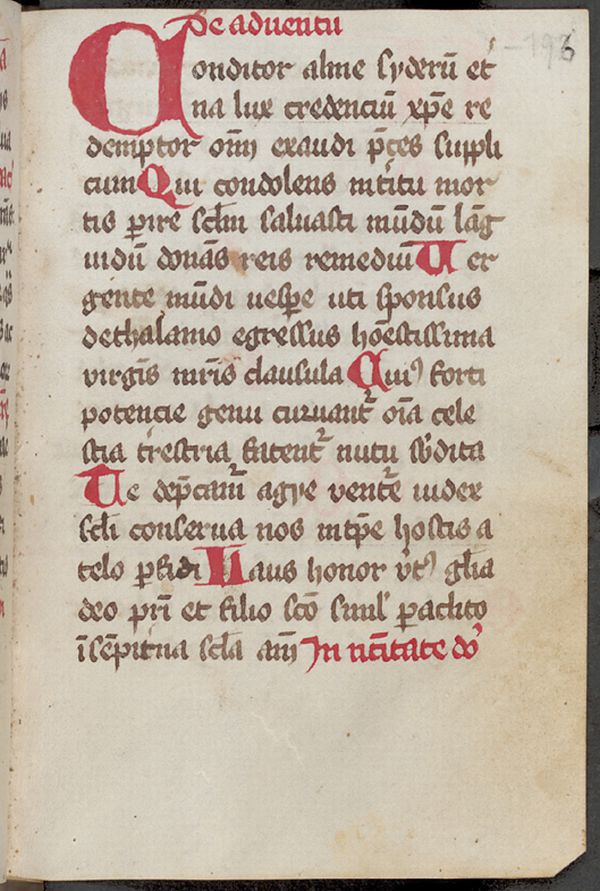 De aduentu
Conditor alme syderū et
na lux credenciū xp̄e re
demptor oīm exaudi p̄ces suppli
cum Qui condolens intitu mor
tis ꝑire sclm saluasti mūdū lāg
uidū donās reis remediū Uer
gente mūdi uesꝑe uti sponsus
de thalamo egressus hoēstissima
virgīs mr̄is clausula Cuiꝰ forti
potencie genu curuantr̄ oīa cele
stia trestria fatentr̄ nutu sb̓dita
Te dep̄camr̄ agye ventr̄e iudex
scli conserua nos intp̄e hostis a
telo ꝑfidi Laus honor v̓tꝰ gl̄ia
deo pr̄i et filio scō simul ꝑaclito
ī sēpit̓na scl̄a am̄ In natiuitate do᷒